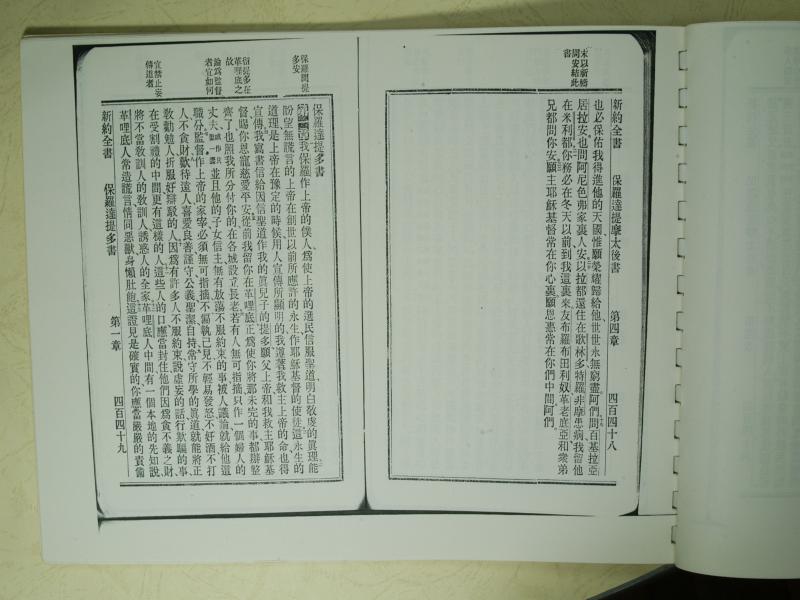 新約全書　保羅達提摩太後書　第四章　四百四十八
末以新禱
問安結此
書
也必保佑我得進他的天國惟願榮耀歸給他世世永無窮盡阿們問百基拉亞
居拉安也問阿尼色弗家裏人安以拉都還住在歌林多特羅非摩患病我留他
在米利都你務必在冬天以前到我這裏來友布羅布田利奴革老底亞和衆弟
兄都問你安願主耶穌基督常在你心裏願恩惠常在你們中間阿們
保羅達提多書
保羅問提
多安
我保羅作上帝的僕人爲使上帝的選民信服聖道明白敬虔的眞理能
盼望無謊言的上帝在創世以前所應許的永生作耶穌基督的使徒這永生的
道理是上帝在豫定的時候用人宣傳所顯明的我遵著我救主上帝的命也得
宣傳我寫書信給因信聖道作我的眞兒子的提多願父上帝和我救主耶穌基
督賜你恩寵慈愛平安從前我留你在革哩底正爲使你將那未完的事都辦整
俗提多在
革哩底之
故
齊了也照我所分付你的在各城設立長老若有人無可指摘只作一個婦人的
論爲監督
者宜如何
丈夫並且他的子女信主無有放蕩不服約束的事被人議論就給他這
職分監督作上帝的家宰必須無可指摘不偏執己見不輕易發怒不好酒不打
人不貪財歡待遠人喜愛良善謹守公義聖潔自持常守所學的眞道就能將正
教勸勉人折服好辯駁的人因爲有許多人不服約束說虛妄的話行欺騙的事
宜禁止妄
傳道者
在受割禮的中間更有這樣的人這些人的口應當封住他們因爲貪不義之財
將不當敎訓人的敎訓人誘惑人的全家革哩底人中間有一個本地的先知說
革哩底人常造謊言情同惡獸身懶肚飽這證見是確實的你應當嚴嚴的責備
新約全書　保羅達提多書　第一章　四百四十九